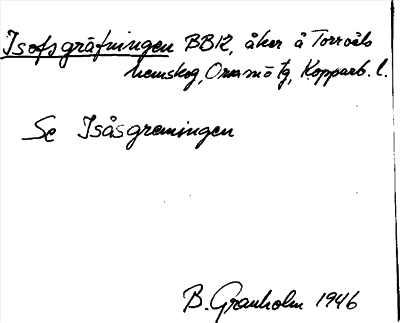 Isofsgräfningen BBR, åker å Torrvåls
hemskog, Orsa sn, Kopparb. l.
Se Isåsgremingen
B. Granholm 1946